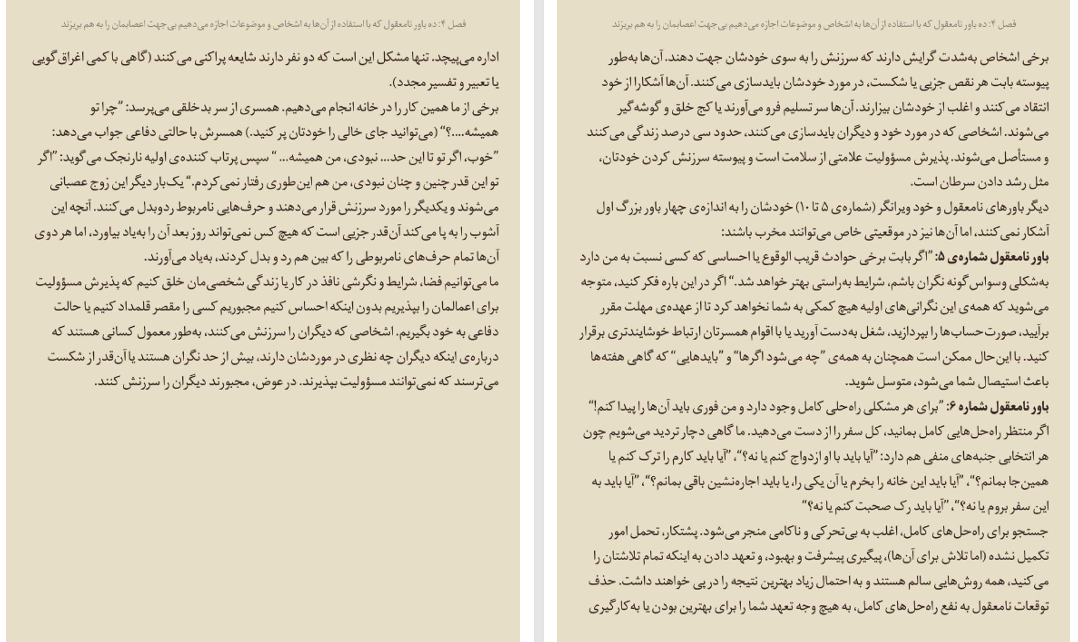 فصل ۴: ده باور نامعقول که با استفاده از آن‌ها به اشخاص و موضوعات اجازه می‌دهیم بی‌جهت اعصابمان را به هم بریزند
اداره می‌پیچد. تنها مشکل این است که دو نفر دارند شایعه پراکنی می‌کنند (گاهی با کمی اغراق‌گویی
یا تعبیر و تفسیر مجدد).
برخی از ما همین کار را در خانه انجام می‌دهیم. همسری از سر بدخلقی می‌پرسد: ”چرا تو
همیشه....؟“ (می‌توانید جای خالی را خودتان پر کنید.) همسرش با حالتی دفاعی جواب می‌دهد:
”خوب، اگر تو تا این حد... نبودی، من همیشه... “ سپس پرتاب کننده‌ی اولیه نارنجک می‌گوید: ”اگر
تو این قدر چنین و چنان نبودی، من هم این‌طوری رفتار نمی‌کردم.“ یک‌بار دیگر این زوج عصبانی
می‌شوند و یکدیگر را مورد سرزنش قرار می‌دهند و حرف‌هایی نامربوط ردوبدل می‌کنند. آنچه این
آشوب را به پا می‌کند آن‌قدر جزیی است که هیچ کس نمی‌تواند روز بعد آن را به‌یاد بیاورد، اما هر دوی
آن‌ها تمام حرف‌های نامربوطی را که بین هم رد و بدل کردند، به‌یاد می‌آورند.
ما می‌توانیم فضا، شرایط و نگرشی نافذ در کار یا زندگی شخصی‌مان خلق کنیم که پذیرش مسؤولیت
برای اعمالمان را بپذیریم بدون اینکه احساس کنیم مجبوریم کسی را مقصر قلمداد کنیم یا حالت
دفاعی به خود بگیریم. اشخاصی که دیگران را سرزنش می‌کنند، به‌طور معمول کسانی هستند که
درباره‌ی اینکه دیگران چه نظری در موردشان دارند، بیش از حد نگران هستند یا آن‌قدر از شکست
می‌ترسند که نمی‌توانند مسؤولیت بپذیرند. در عوض، مجبورند دیگران را سرزنش کنند.
فصل ۴: ده باور نامعقول که با استفاده از آن‌ها به اشخاص و موضوعات اجازه می‌دهیم بی‌جهت اعصابمان را به هم بریزند
برخی اشخاص به‌شدت گرایش دارند که سرزنش را به سوی خودشان جهت دهند. آن‌ها به‌طور
پیوسته بابت هر نقص جزیی یا شکست، در مورد خودشان بایدسازی می‌کنند. آن‌ها آشکارا از خود
انتقاد می‌کنند و اغلب از خودشان بیزارند. آن‌ها سر تسلیم فرو می‌آورند یا کج خلق و گوشه‌گیر
می‌شوند. اشخاصی که در مورد خود و دیگران بایدسازی می‌کنند، حدود سی درصد زندگی می‌کنند
و مستأصل می‌شوند. پذیرش مسؤولیت علامتی از سلامت است و پیوسته سرزنش کردن خودتان،
مثل رشد دادن سرطان است.
دیگر باورهای نامعقول و خود ویرانگر (شماره‌ی ۵ تا ۱۰) خودشان را به اندازه‌ی چهار باور بزرگ اول
آشکار نمی‌کنند، اما آن‌ها نیز در موقعیتی خاص می‌توانند مخرب باشند:
باور نامعقول شماره‌ی ۵: ”اگر بابت برخی حوادث قریب الوقوع یا احساسی که کسی نسبت به من دارد
به‌شکلی وسواس‌گونه نگران باشم، شرایط به‌راستی بهتر خواهد شد.“ اگر در این باره فکر کنید، متوجه
می‌شوید که همه‌ی این نگرانی‌های اولیه هیچ کمکی به شما نخواهد کرد تا از عهده‌ی مهلت مقرر
برآیید، صورت حساب‌ها را بپردازید، شغل به‌دست آورید یا با اقوام همسرتان ارتباط خوشایندتری برقرار
کنید. با این‌حال ممکن است همچنان به همه‌ی ”چه می‌شود اگرها“ و ”بایدهایی“ که گاهی هفته‌ها
باعث استیصال شما می‌شود، متوسل شوید.
باور نامعقول شماره ۶: ”برای هر مشکلی راه‌حلی کامل وجود دارد و من فوری باید آن‌ها را پیدا کنم!“
اگر منتظر راه‌حل‌هایی کامل بمانید، کل سفر را از دست می‌دهید. ما گاهی دچار تردید می‌شویم چون
هر انتخابی جنبه‌های منفی هم دارد: ”آیا باید با او ازدواج کنم یا نه؟“، ”آیا باید کارم را ترک کنم یا
همین‌جا بمانم؟“، ”آیا باید این خانه را بخرم یا آن یکی را، یا باید اجاره‌نشین باقی بمانم؟“، ”آیا باید به
این سفر بروم یا نه؟“، ”آیا باید رک صحبت کنم یا نه؟“
جستجو برای راه‌حل‌های کامل، اغلب به بی‌تحرکی و ناکامی منجر می‌شود. پشتکار، تحمل امور
تکمیل نشده (اما تلاش برای آن‌ها)، پیگیری پیشرفت و بهبود، و تعهد دادن به اینکه تمام تلاشتان را
می‌کنید، همه روش‌هایی سالم هستند و به احتمال زیاد بهترین نتیجه را در پی خواهند داشت. حذف
توقعات نامعقول به نفع راه‌حل‌های کامل، به هیچ وجه تعهد شما را برای بهترین بودن یا به‌کارگیری